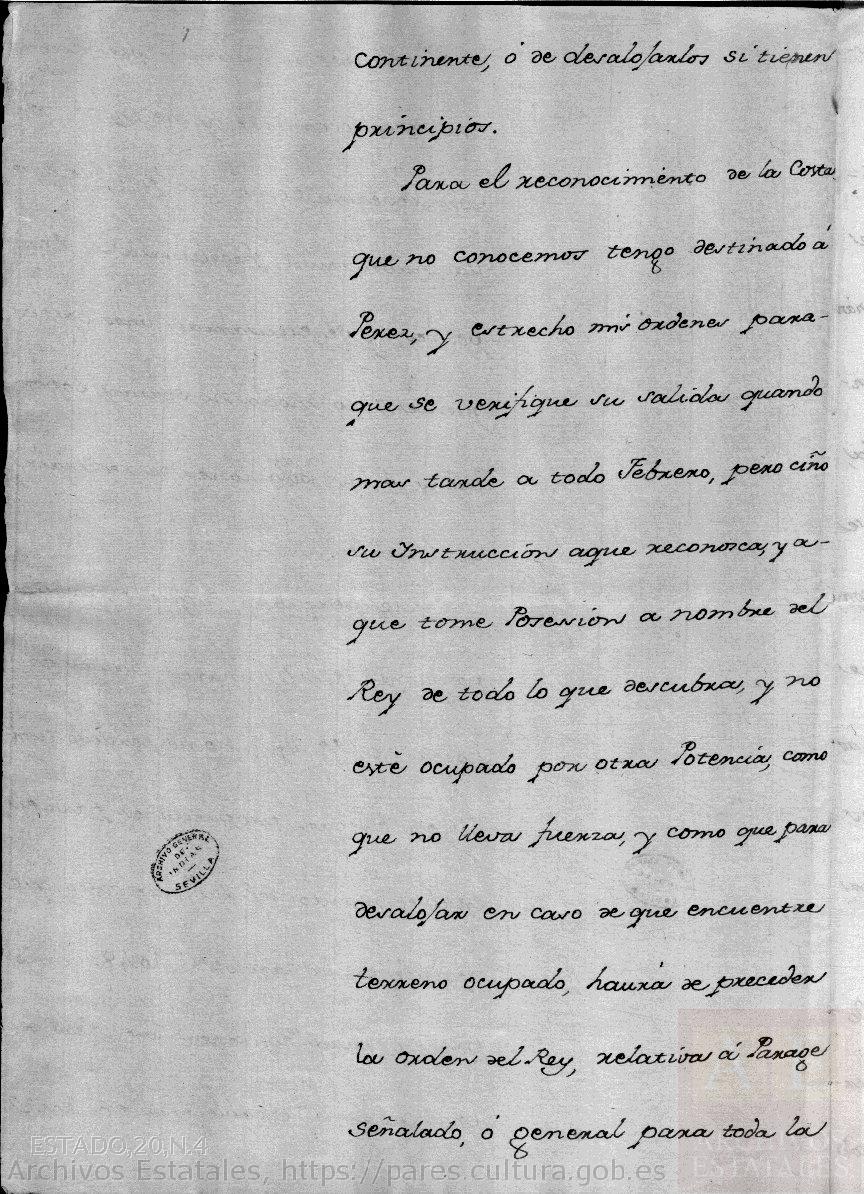 continente, ó de desalojarlos si tienen
principios.
Para el reconocimiento de la Costa
que no conocemos tengo destinado á
Perez, y estrecho mis ordenes para-
que se verifique su salida quando
mas tarde a todo Febrero, pero ciño
su Instruccion aque reconosca, y a-
que tome Posession a nombre del
Rey de todo lo que descubra, y no
estè ocupado por otra Potencia, como
que no lleva fuerza, y como que para
desalojar en caso de que encuentre
terreno ocupado, haurà de preceder
la orden del Rey, relativa á Parage
señalado, ó general para toda la
ARCHIVO GENERAL
DE
INDIAS
SEVILLA
ESTADO,20,N.4
Archivos Estatales, https://pares.cultura.gob.es
ESTATALES